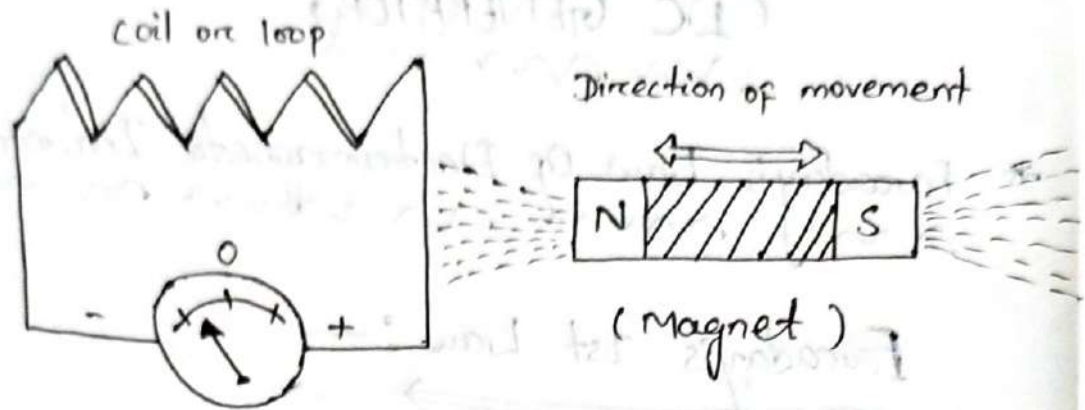 Coil ore loop
Direction of movement
N
S
0
-
+
(Magnet)